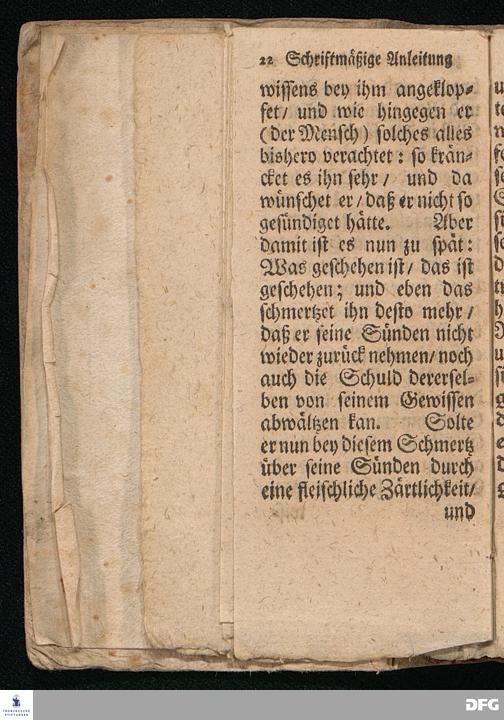 22 Schriftmäßige Anleitung
wissens bey ihm angeklop-
fet/ und wie hingegen er
(der Mensch) solches alles
bishero verachtet: so krän-
cket es ihn sehr/ und da
wünschet er/ daß er nicht so
gesündiget hätte. Aber
damit ist es nun zu spät:
Was geschehen ist/ das ist
geschehen; und eben das
schmertzet ihn desto mehr/
daß er seine Sünden nicht
wieder zurück nehmen/ noch
auch die Schuld dererſel-
ben von seinem Gewissen
abwältzen kan. Solte
er nun bey diesem Schmertz
über seine Sünden durch
eine fleischliche Zärtlichkeit/
und
DFG